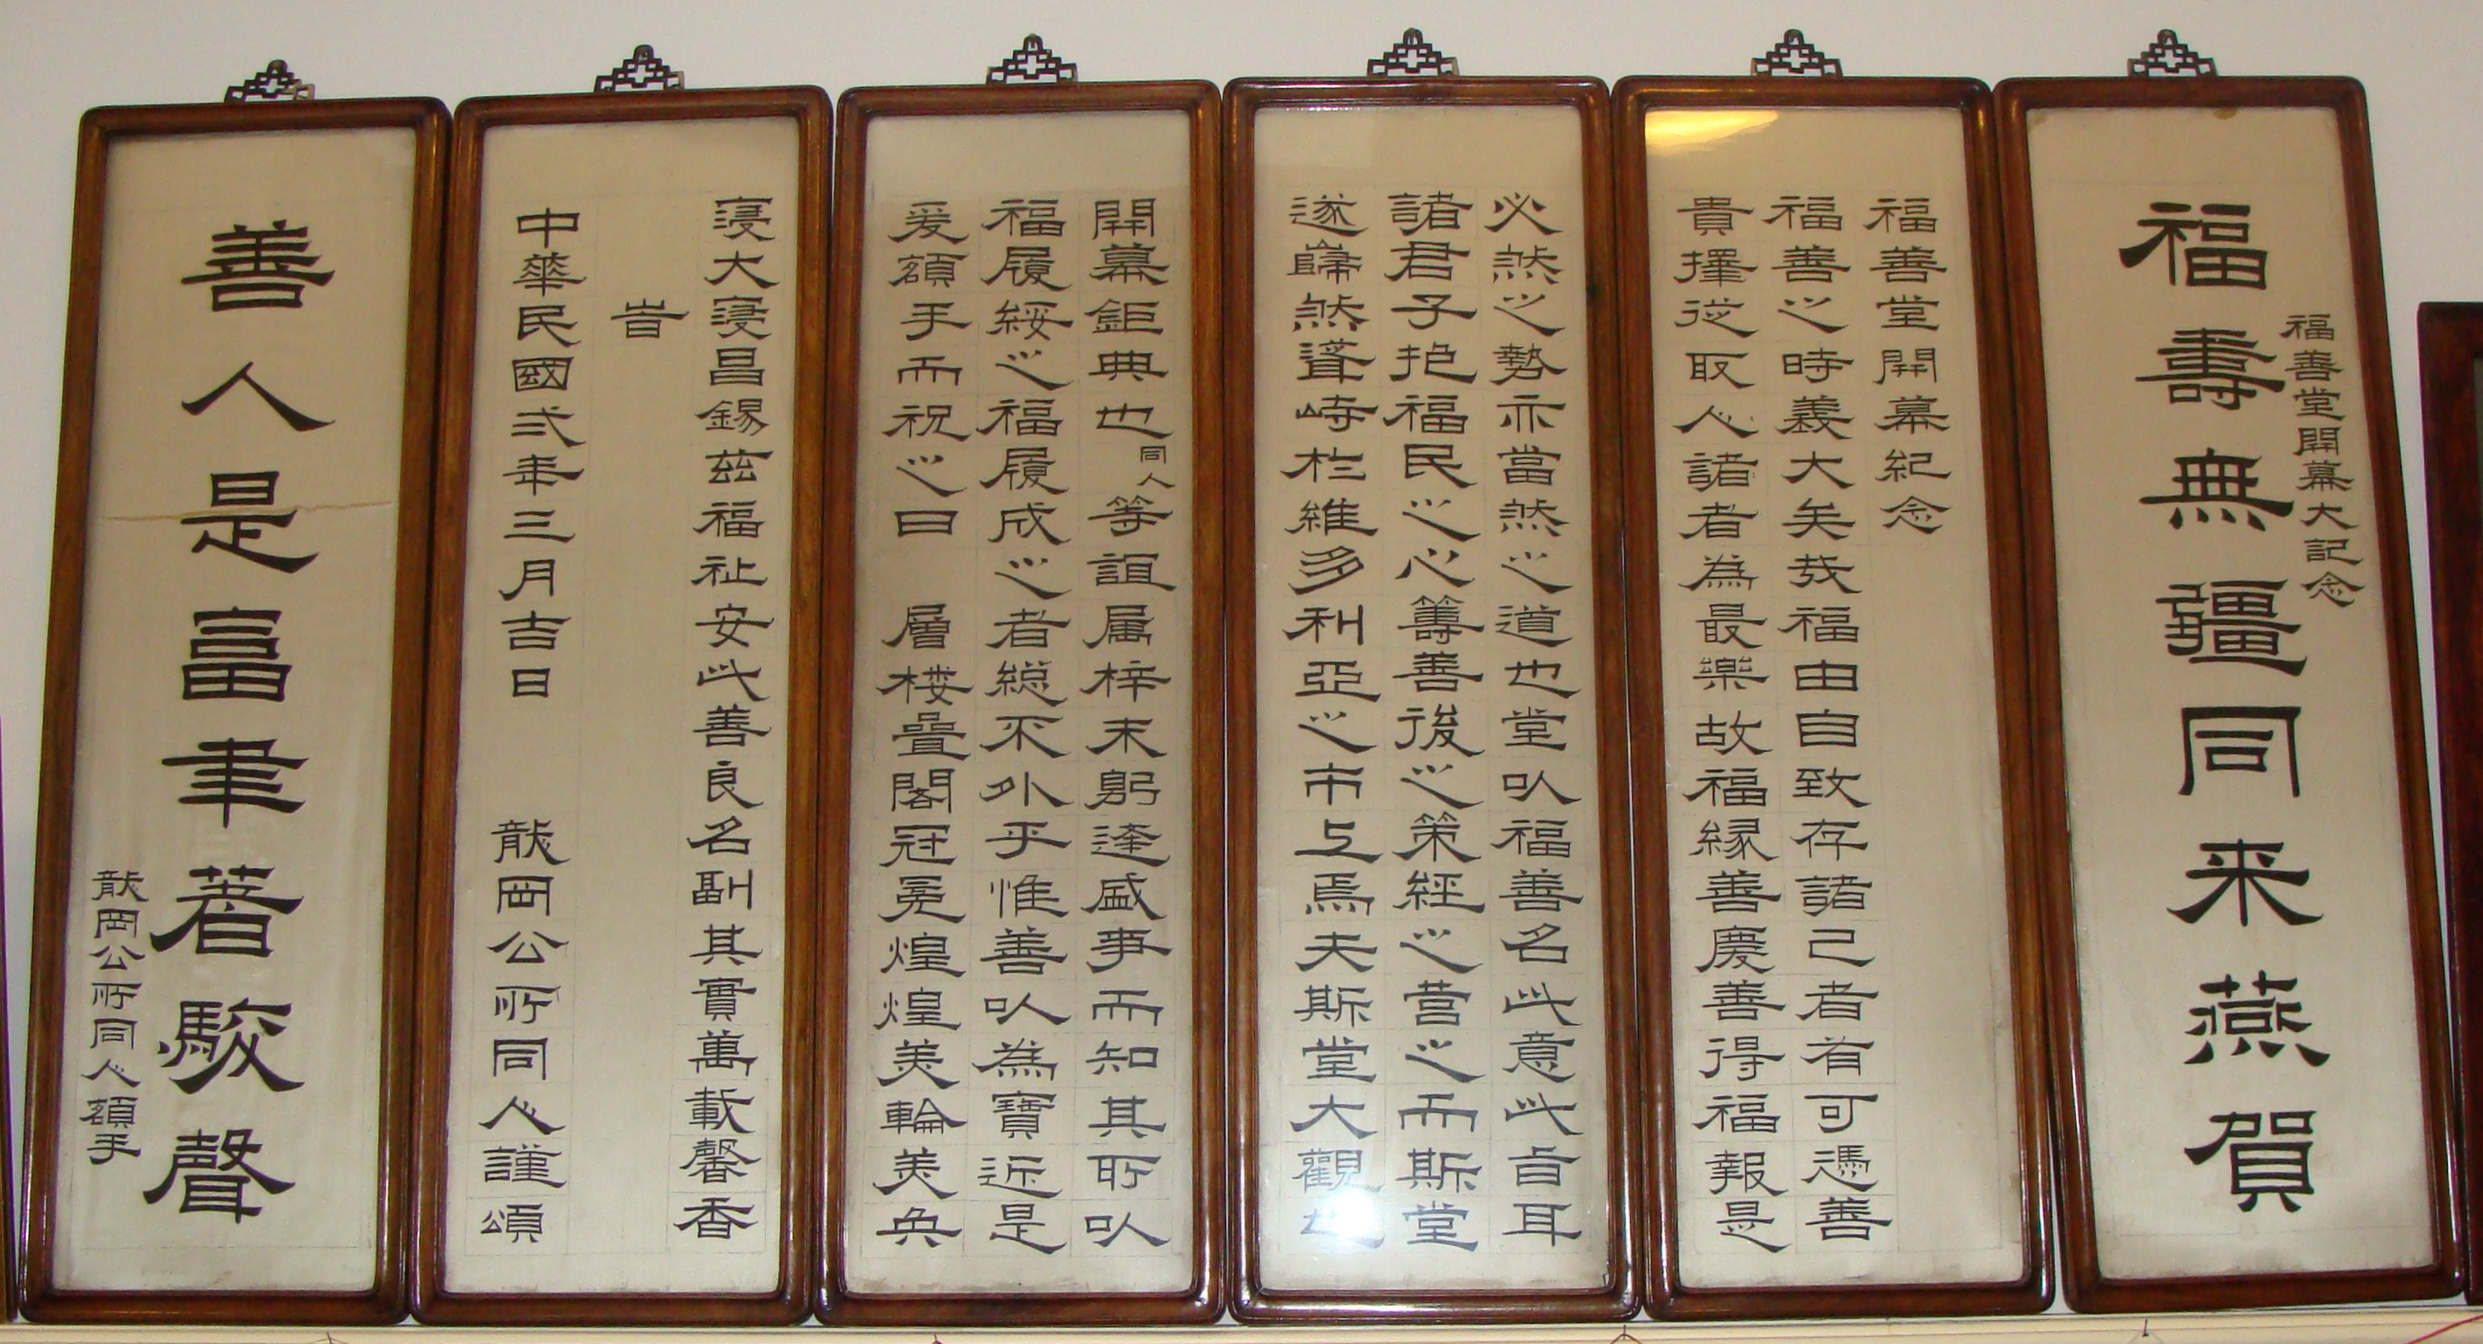 福善堂開幕大記念
福壽無疆同来燕賀
福善堂開幕紀念
福善之時義大矣哉福由自致存諸己者有可憑善
貴擇従取人諸者為最樂故福縁善慶善得福報是
必然之勢亦當然之道也堂㕥福善名此意此旨耳
諸君子抱福民之心籌善後之策經之営之而斯堂
遂巋然聳峙於維多利亞之市上焉夫斯堂大觀也
開幕鉅典也同人等誼属梓末躬逢盛事而知其所㕥
福履綏之福履成之者総不外乎惟善㕥為寶近是
爰額手而祝之曰 層楼疊閣冠冕煌煌美輪美奐
寖大寖昌錫茲福祉安此善良名副其實萬載馨香
旹
中華民國弍年三月吉日 龍岡公所同人謹頌
善人是富聿著駿聲
龍岡公所同人額手